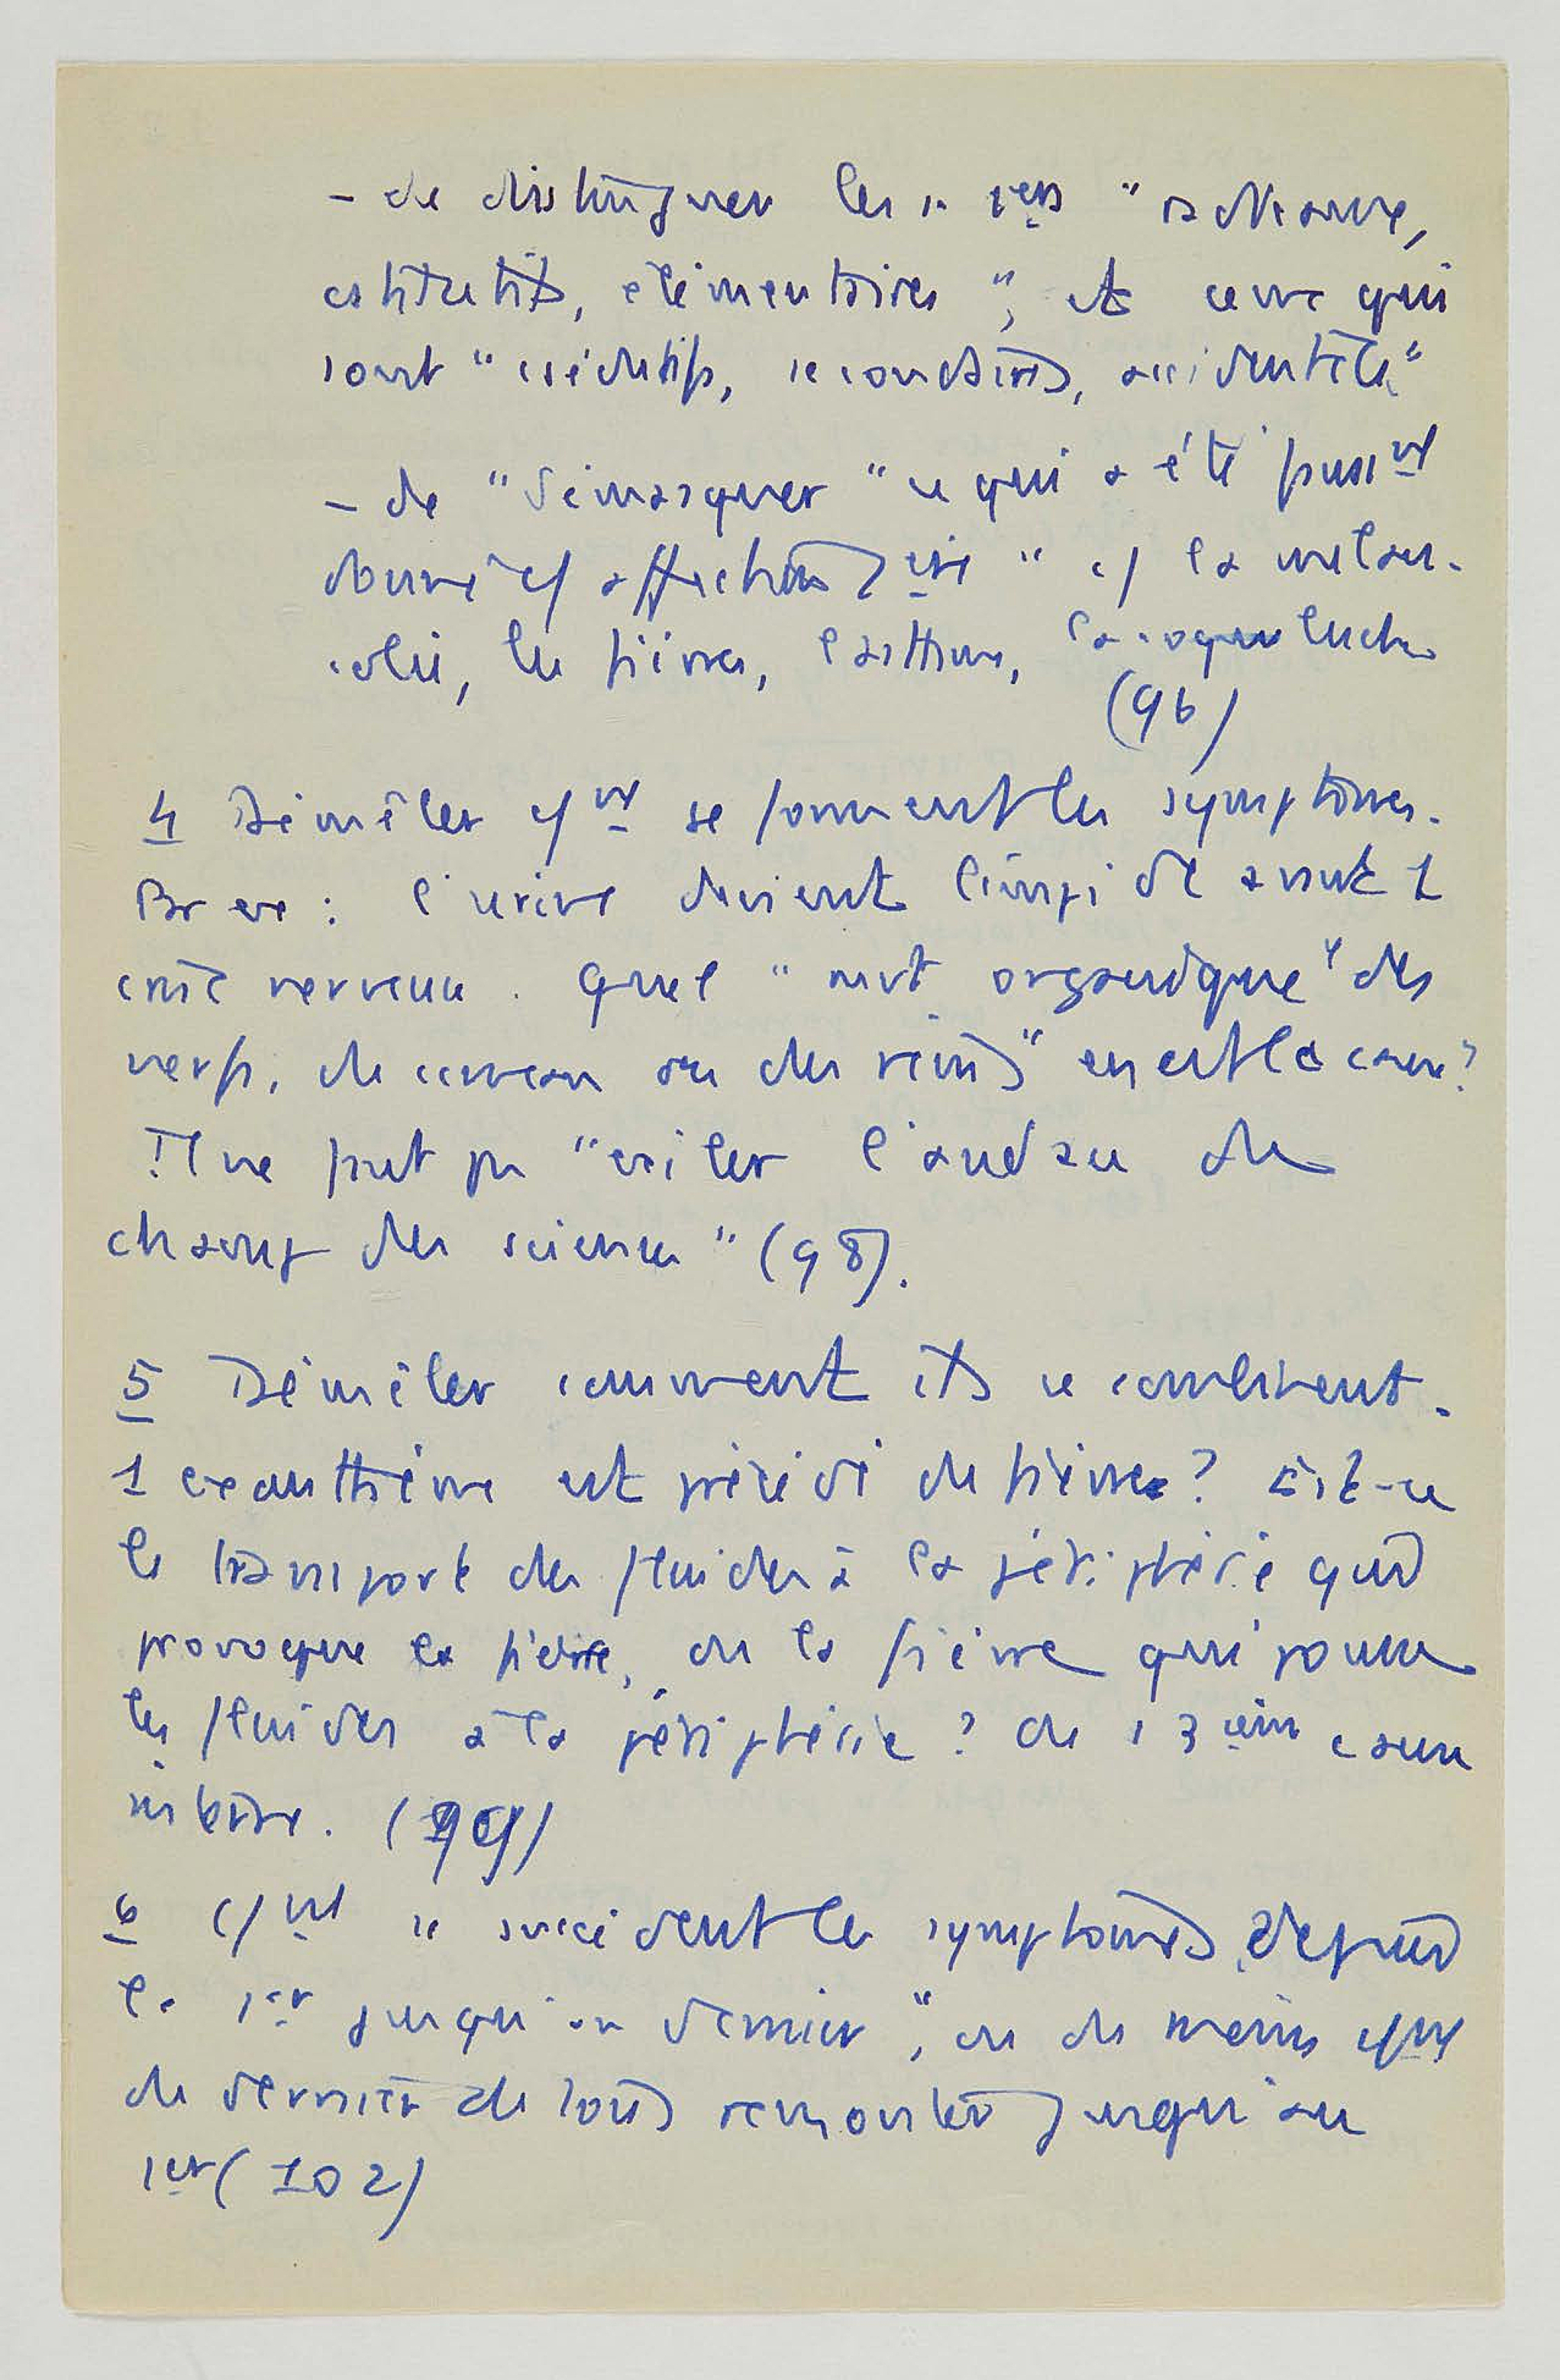 - de distinguer les
constitutifs, élémentaires ", et ceux qui
sont " consécutifs, secondaires, accidentels "
- de " démasquer " ce qui a été puremt
donné c/ affection " c/ la mélan-
colie, les fièvres, l'asthme, la coqueluche
(96)
4 Démêler c/mt se forment les symptômes.
Par ex : l'urine devient limpide avant 1
crise nerveuse. Quel " mvt organique " des
nerfs, du cerveau ou des reins " en est la cause ?
Il ne faut pas " exiler l'analyse du
champ des sciences " (98).
5 Démêler comment ils se combinent.
1 exanthème est précédé de fièvre ? Est-ce
le transport des fluides à la périphérie qui
provoque la fièvre, ou la fièvre qui pousse
les fluides à la périphérie ? ou 1 3ème cause
(99)
6 c/mt se succèdent les symptômes, depuis
le 1er jusqu'au dernier ", ou du moins c/mt
du dernier de tous remonter jusqu'au
1er (102)